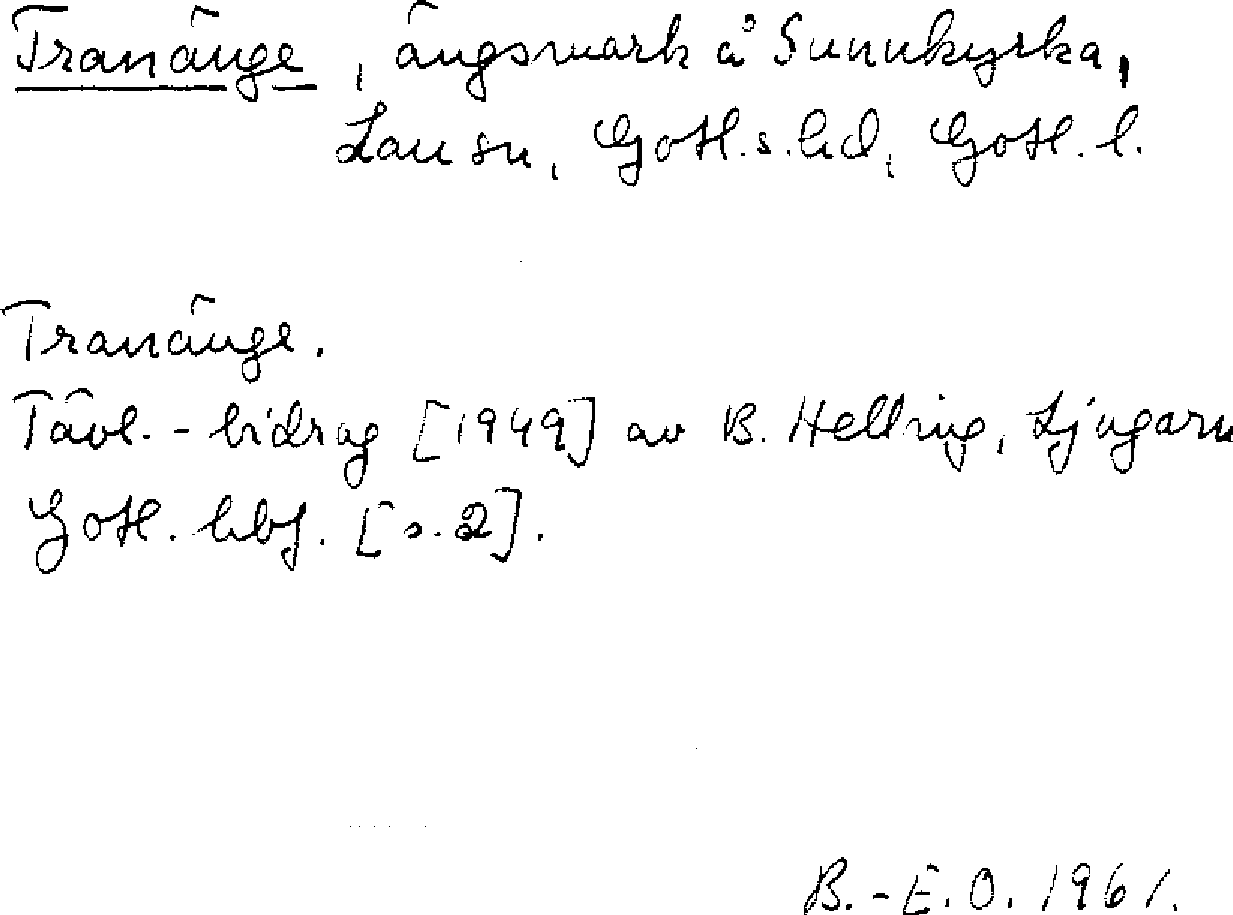 Tranänge, ängsmark å Sunnkyrka,
Lau sn, Gotl.s.hd, Gotl. l.
Tranänge.
Tävl.-bidrag [1949] av B. Hellring, Ljugarn
Gotl. hbf. [s.2].
B.-E.O. 1961.